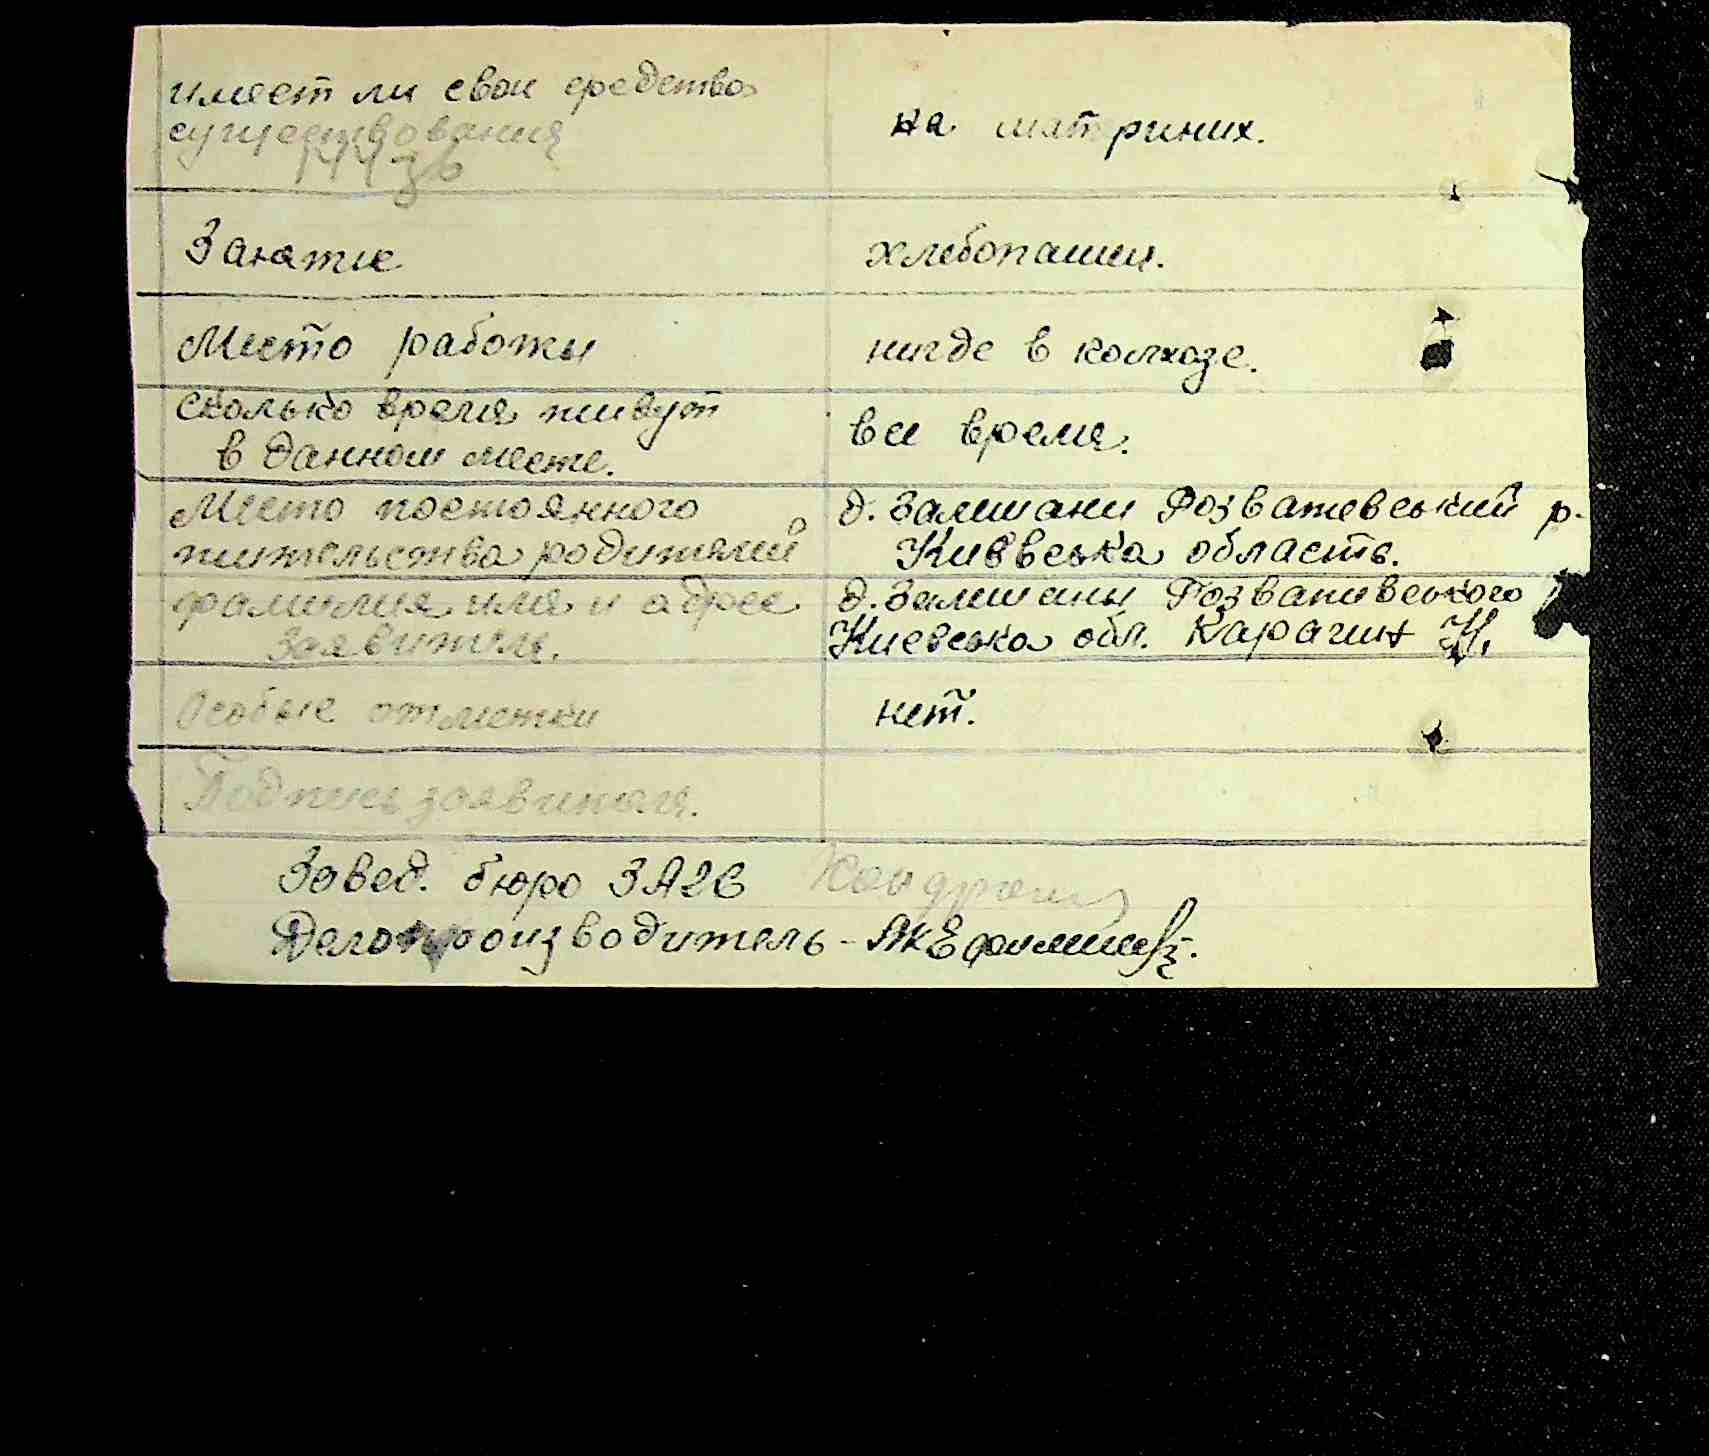 имеет ли свои средства
существования
на материних.
Занятие
хлебопашец.
Место работы
нигде в колхозе.
сколько время живут
в данном месте.
все время.
Место постоянного
жительства родителей
д. Залишани Розважевський р.
Киевська область.
фамилия имя и адрес
заявитель.
д. Залишаны Розважевського
Киевська обл. Карагин Н.
Особые отметки
нет.
Подпись заявителя.
Завед. бюро ЗАГС
Делопроизводитель -